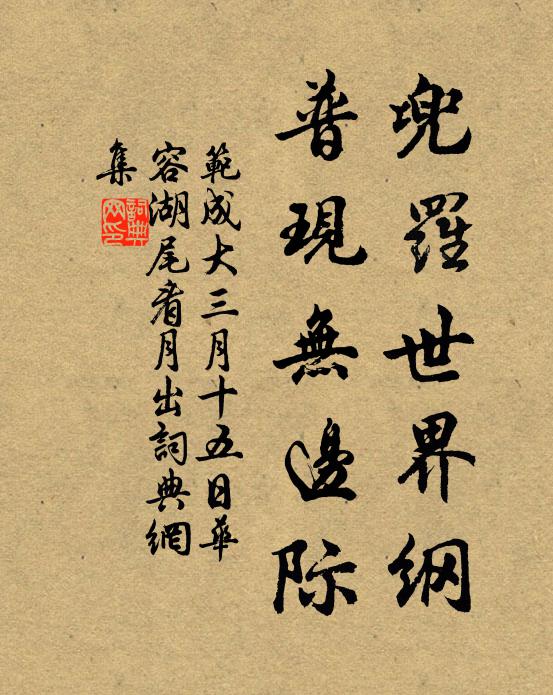 兜羅世界綱
普現無邊際
範成大三月十五日華
容湖尾看月出詞典網
集
詞典
网印